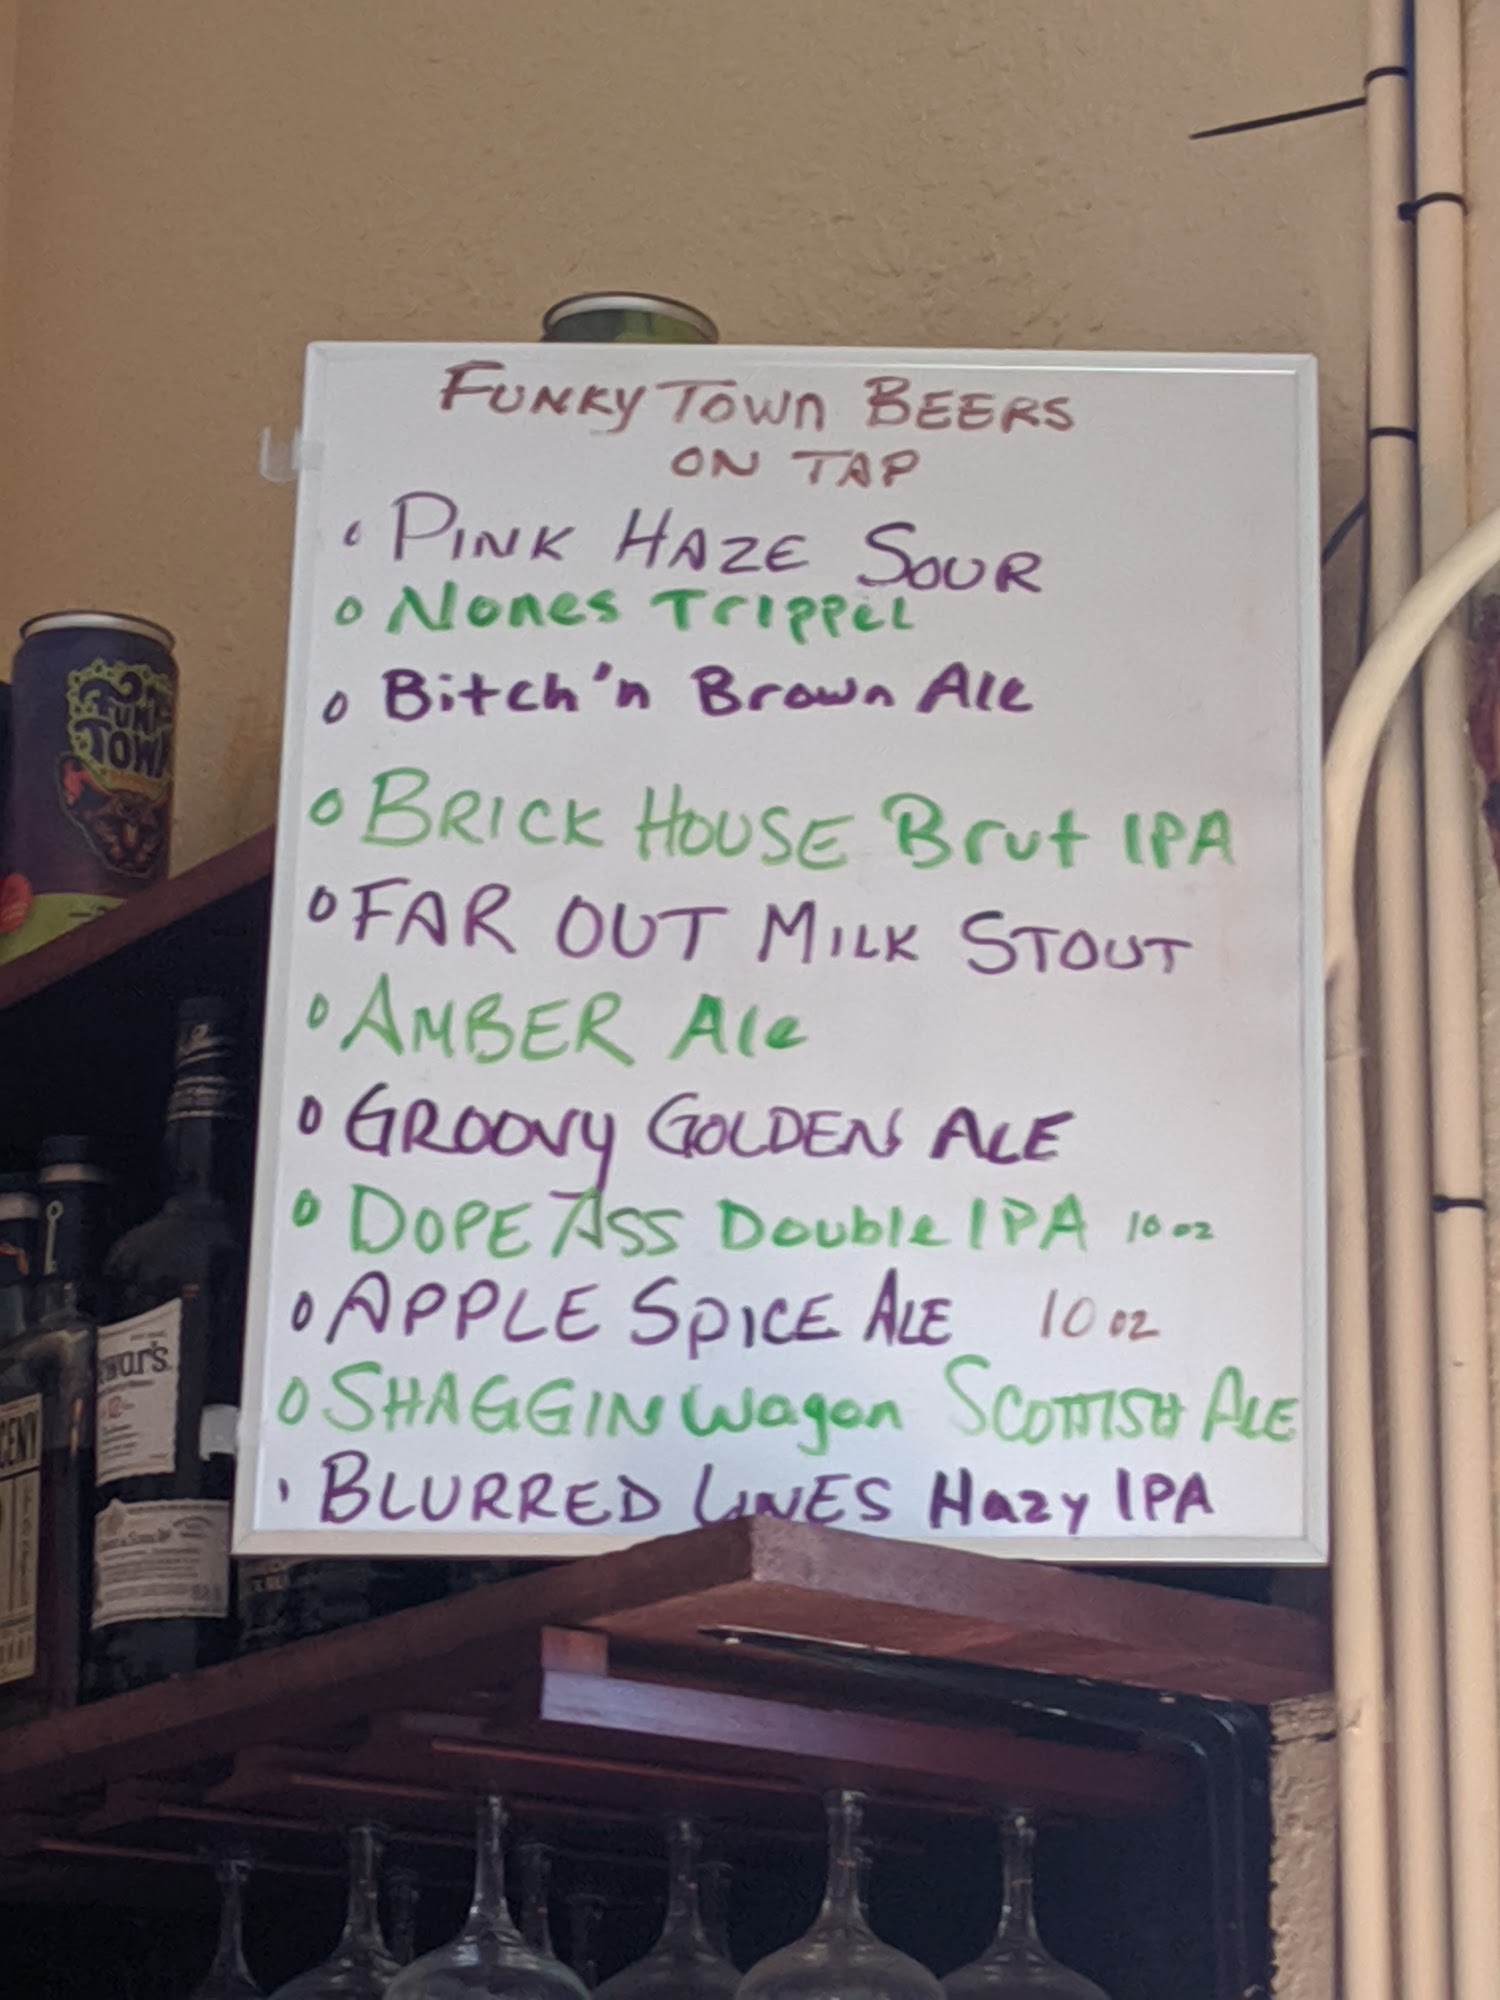 FUNKY TOWN BEERS
ON TAP
PINK HAZE SOUR
Nones Trippel
Bitch'n Brown Ale
BRICK HOUSE Brut IPA
FAR OUT MILK STOUT
AMBER Ale
GROOVY GOLDEN ALE
DOPE ASS Double IPA 10 oz
APPLE SPICE ALE 10 oz
SHAGGIN Wagon SCOTTISH ALE
BLURRED LINES Hazy IPA
FUNKY
TOWN
12